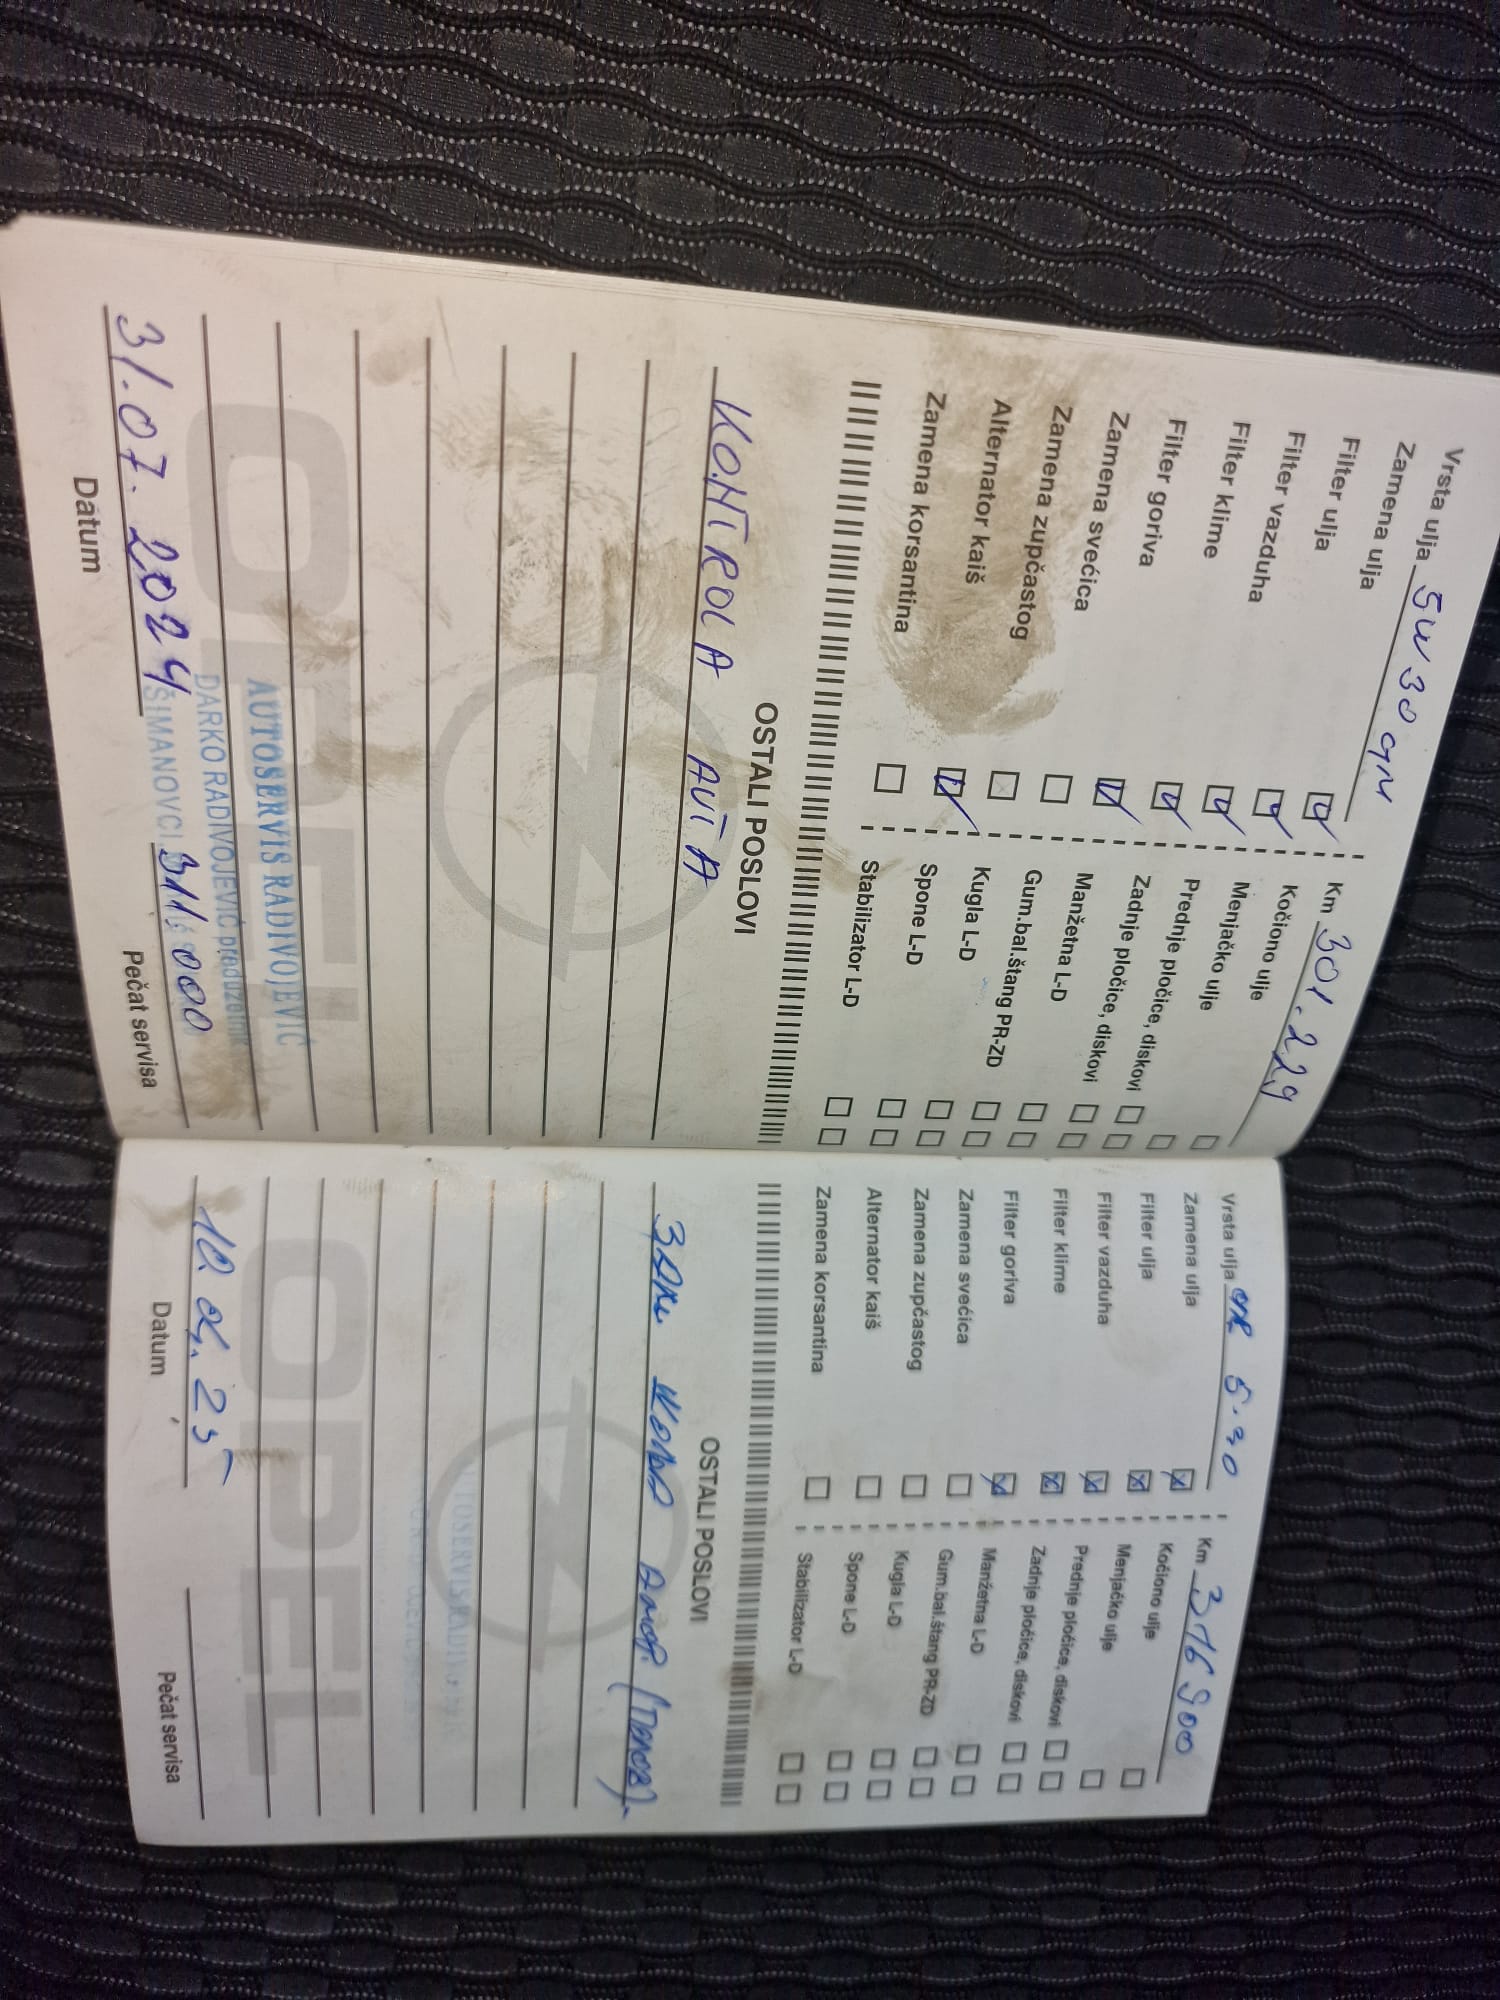 Vrsta ulja 5W30 GM Km 301.229
Zamena ulja
Filter ulja Kočiono ulje
Filter vazduha Menjačko ulje
Filter klime Prednje pločice, diskovi
Filter goriva Zadnje pločice, diskovi
Zamena svećica Manžetna L-D
Zamena zupčastog Gum.bal.štang PR-ZD
Alternator kaiš Kugla L-D
Zamena korsantina Spone L-D
Stabilizator L-D
OSTALI POSLOVI
KONTROLA AUTA
OPEL
AUTOSERVIS RADIVOJEVIĆ
DARKO RADIVOJEVIĆ preduzetnik
ŠIMANOVCI
31.07.2024 311.000
Datum Pečat servisa
Vrsta ulja 5.30 Km 316900
Zamena ulja Kočiono ulje
Filter ulja Menjačko ulje
Filter vazduha Prednje pločice, diskovi
Filter klime Zadnje pločice, diskovi
Filter goriva Manžetna L-D
Zamena svećica Gum.bal.štang PR-ZD
Zamena zupčastog Kugla L-D
Alternator kaiš Spone L-D
Zamena korsantina Stabilizator L-D
OSTALI POSLOVI
OPEL
Datum Pečat servisa